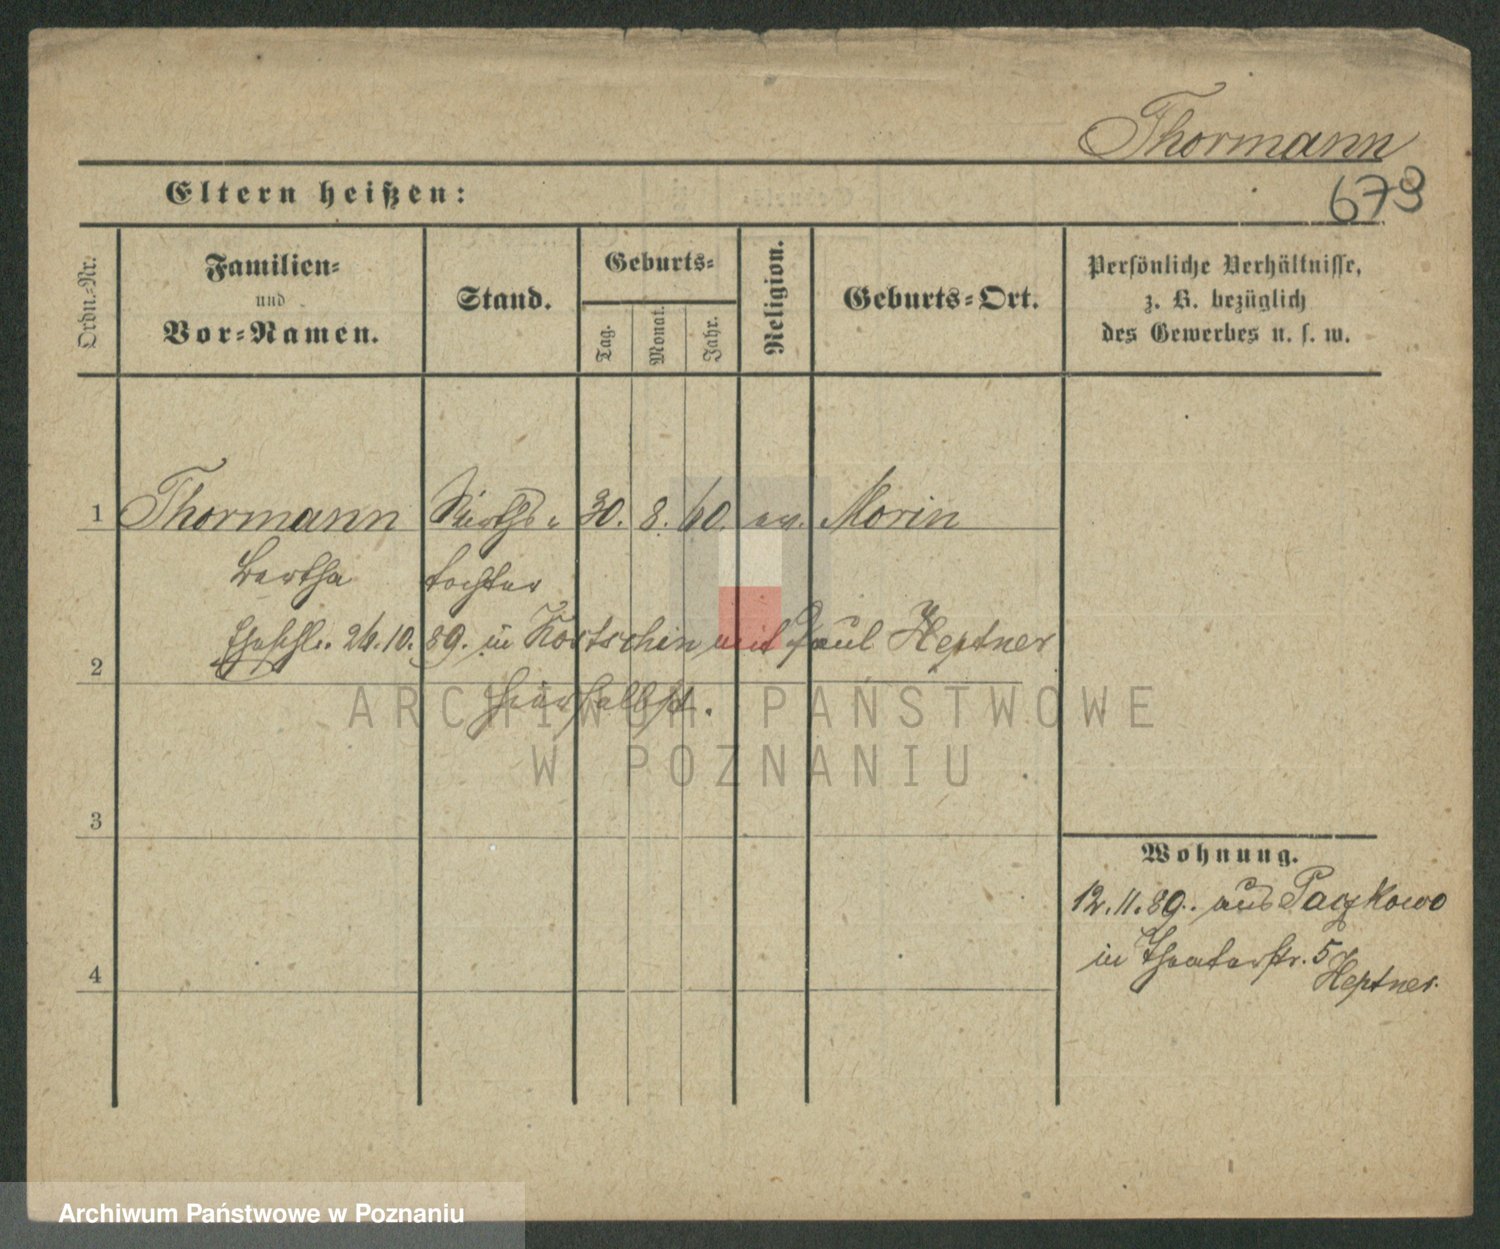 Thormann
Eltern heißen:
679
Ordn.-Nr.
Familien-
und
Vor-Namen.
Stand.
Geburts-
Tag.
Monat.
Jahr.
Religion.
Geburts-Ort.
Persönliche Verhältnisse,
z. B. bezüglich
des Gewerbes u. s. w.
1 Thormann Wirths- 30. 8. 60. ev. Morin
Bertha tochter
Eheschl. 26.10.89. in Kostschin mit Paul Heptner
2
hierselbst.
ARCHIWUM PAŃSTWOWE
W POZNANIU
3
Wohnung.
12.11.89. aus Paczkowo
in Theaterstr. 5 
Heptner.
4
Archiwum Państwowe w Poznaniu